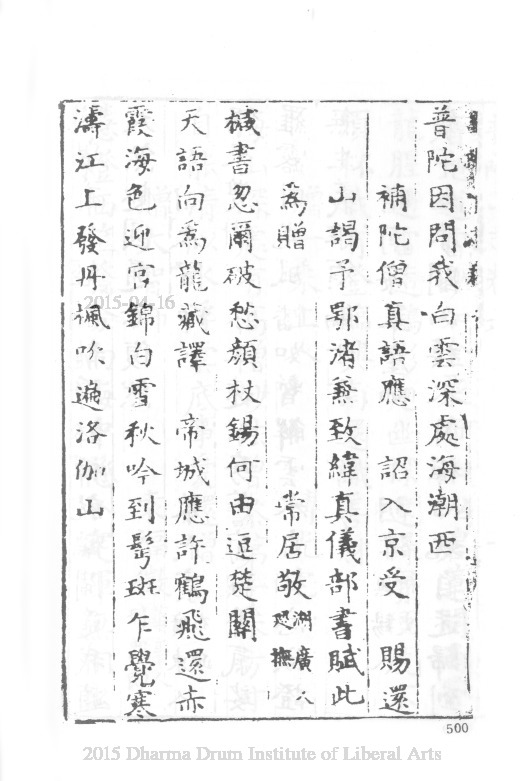 普陀因問我白雲深處海潮西
補陀僧真語應 詔入京受 賜還
山謁予鄂渚兼致緯真儀部書賦此
為贈 常居敬 湖廣人 巡撫
椷書忽爾破愁顏杖錫何由逗楚關
天語向為龍藏譯 帝城應許鶴飛還赤
霞海色迎宮錦白雪秋吟到鬢斑乍覺寒
濤江上發丹楓吹遍洛伽山
500
2015-04-16
2015 Dharma Drum Institute of Liberal Arts